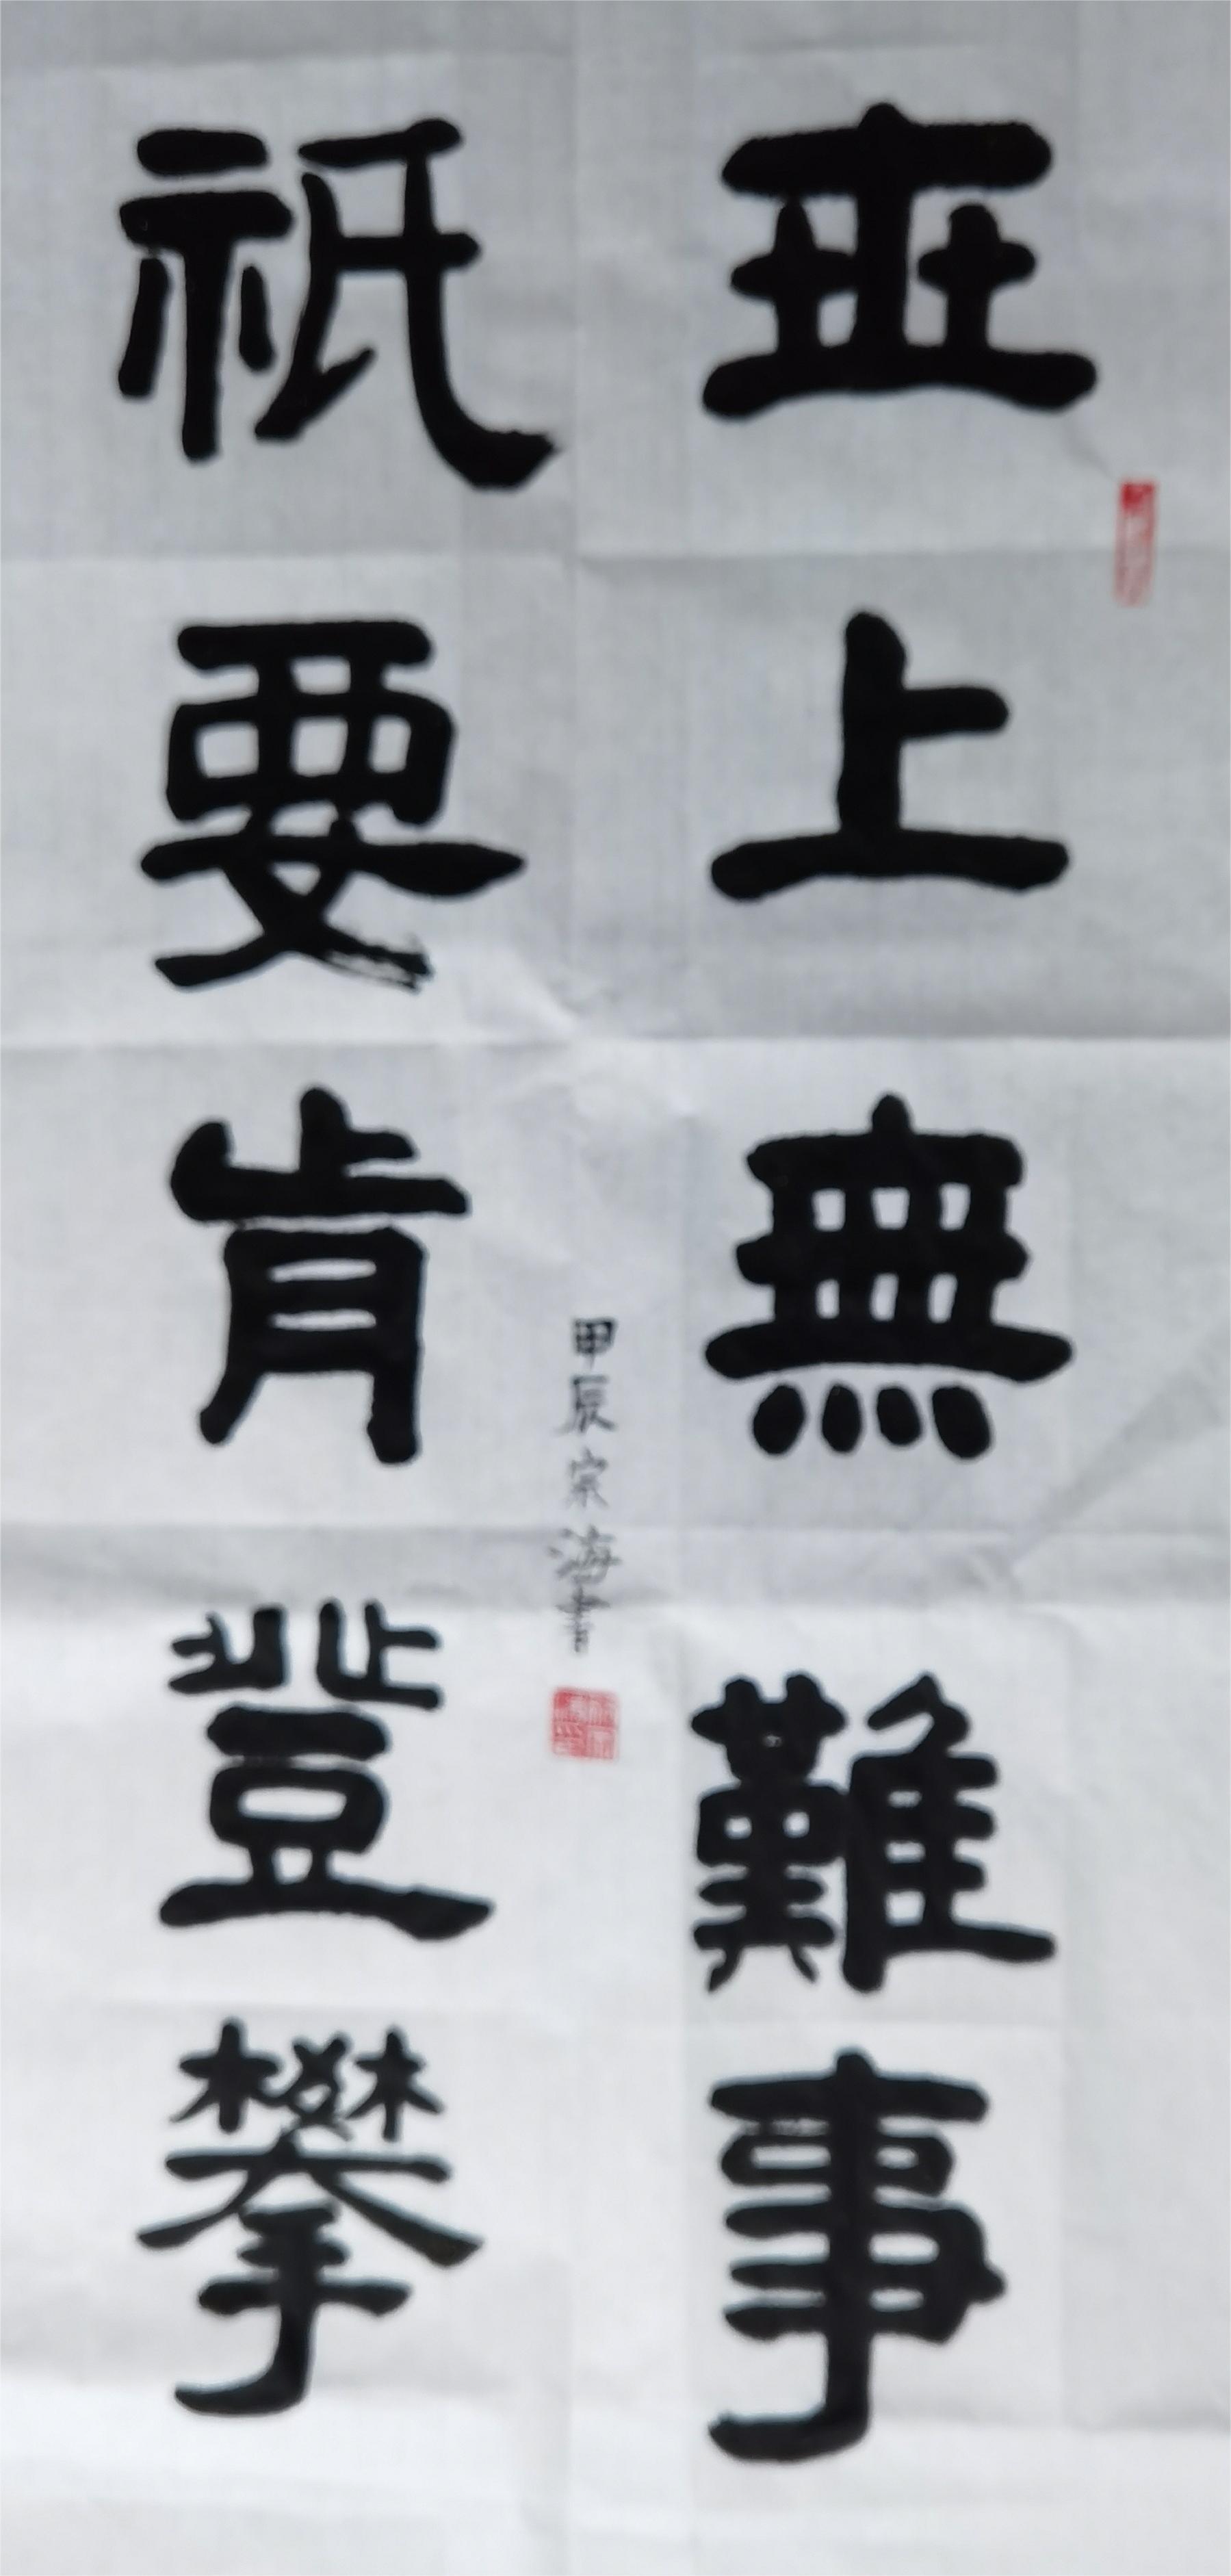 世上無難事
祇要肯登攀
甲辰宗海書